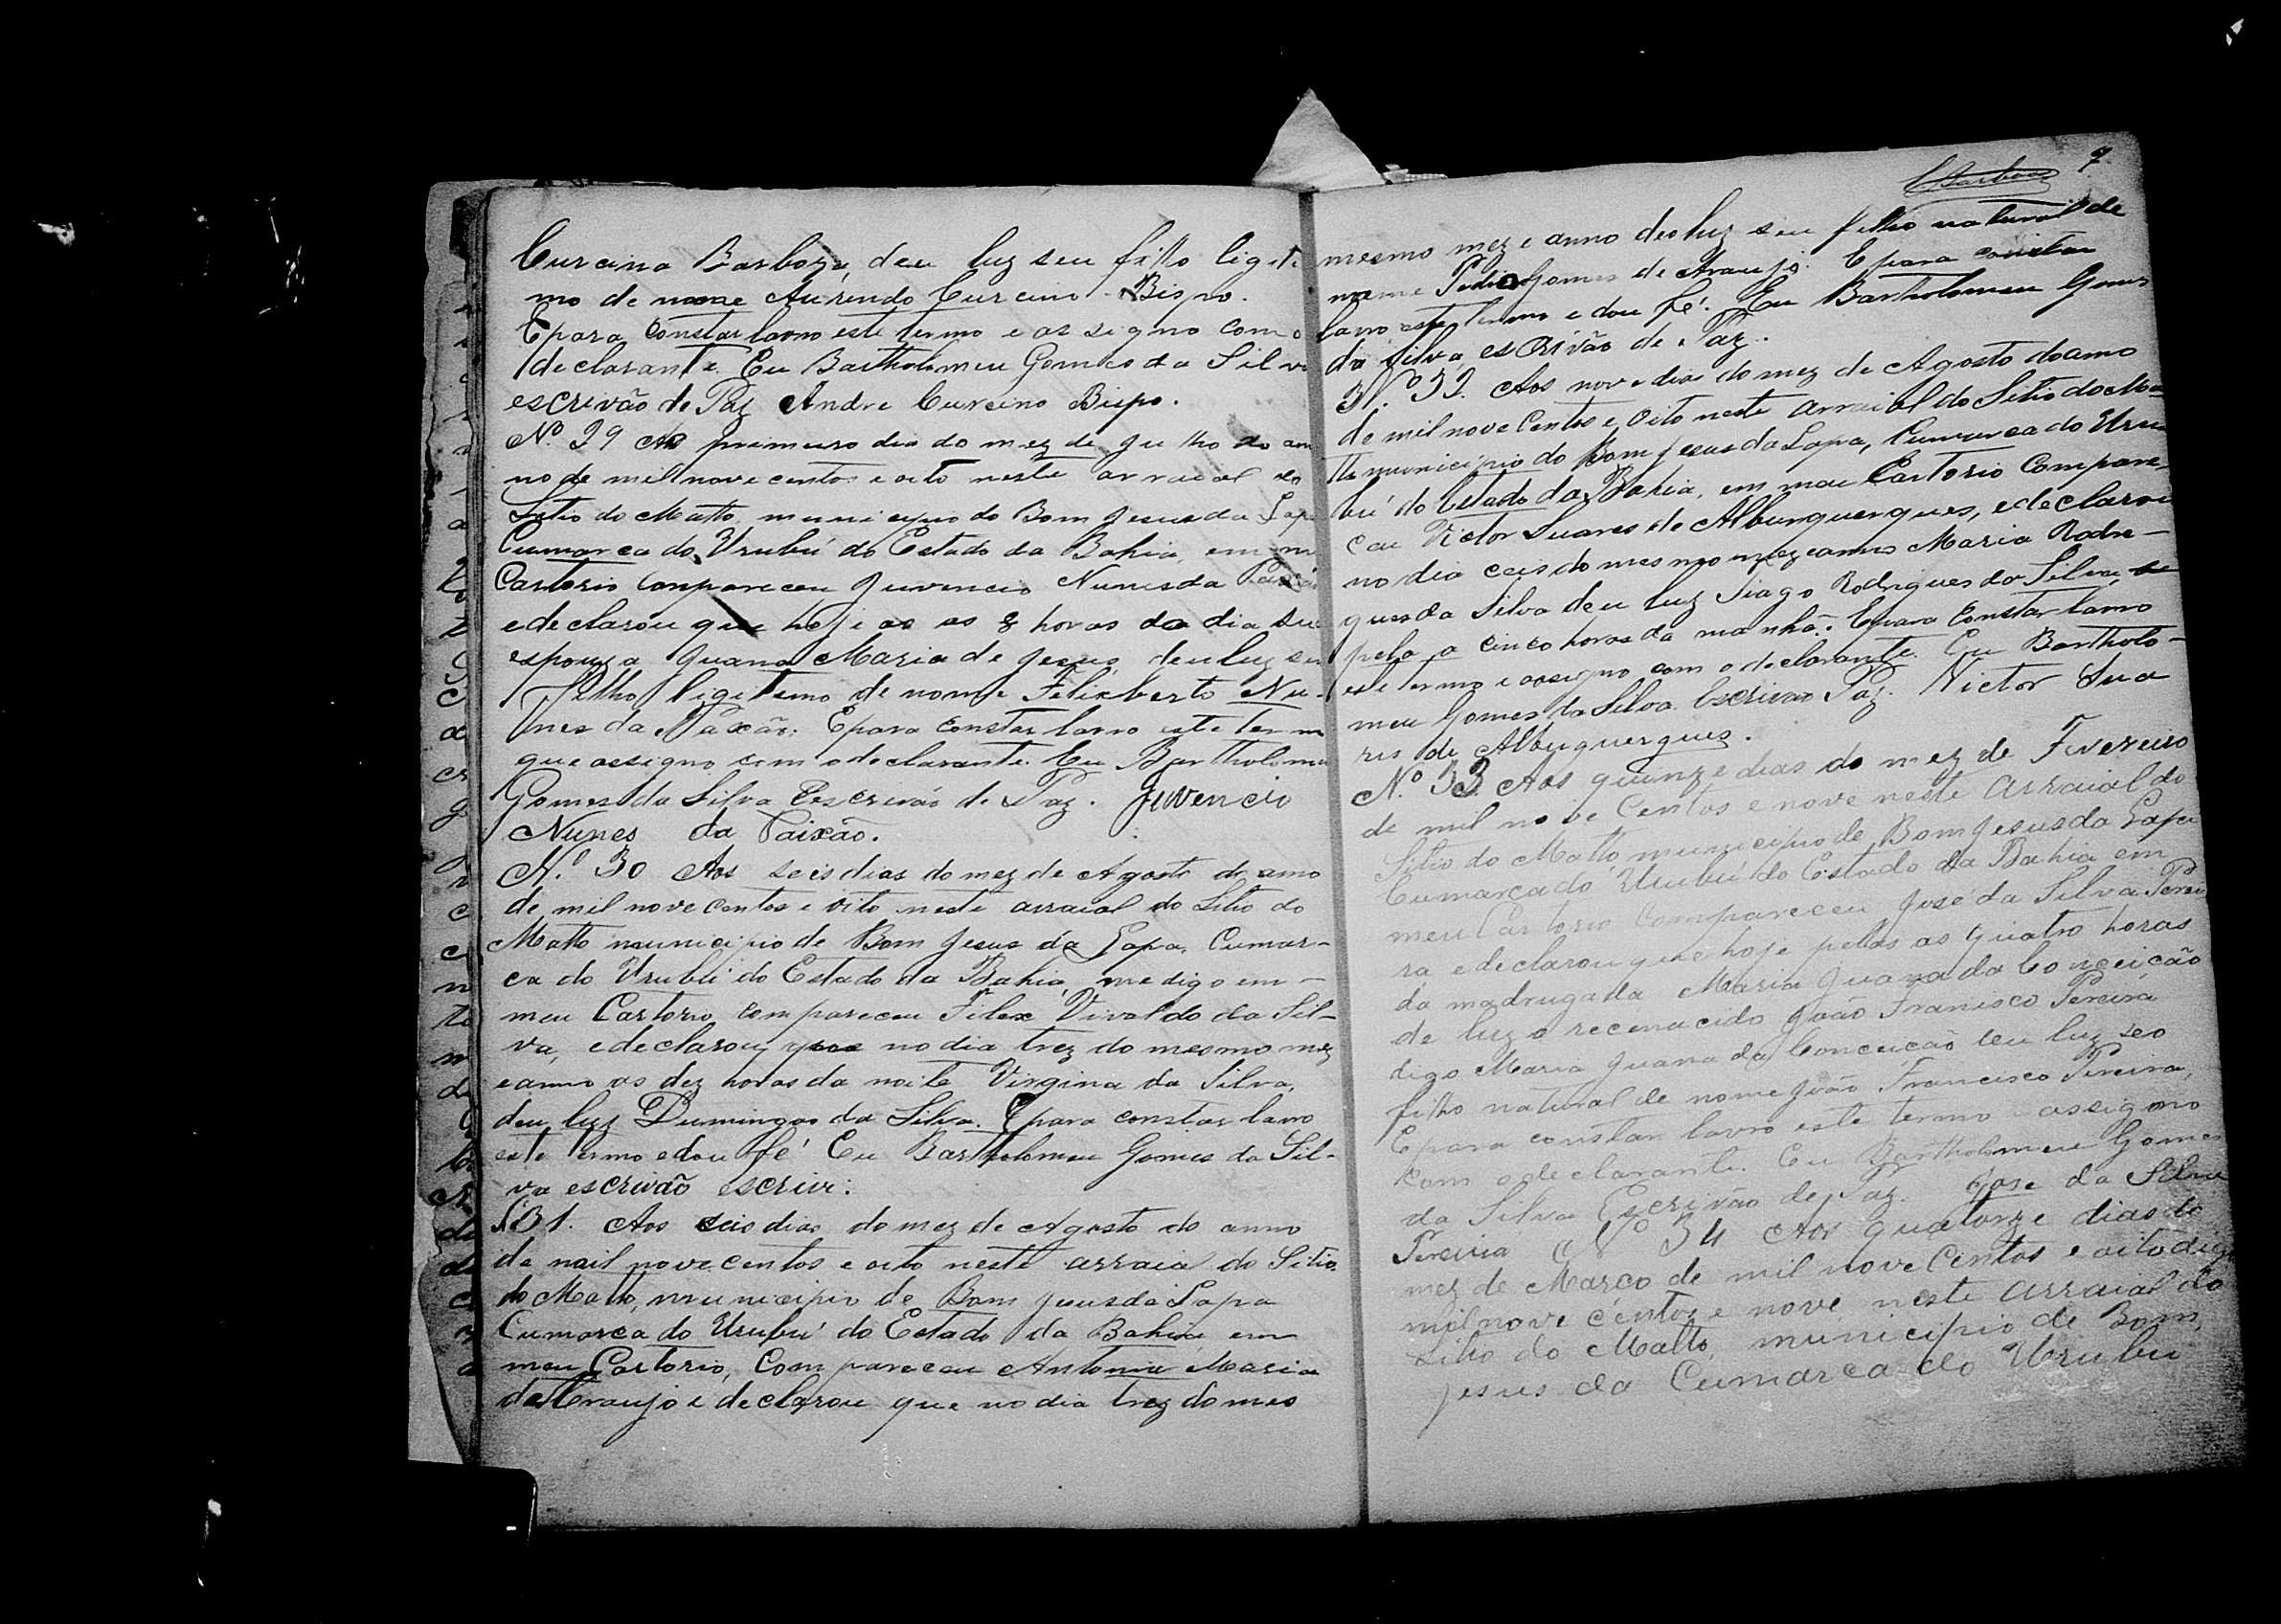 Curcina Barboza, deu luz seu filho ligiti
mo de nome Aurindo Curcino Bispo.
E para constar lavro este termo e as signo com o
declarante. Eu Bartholomeu Gomes da Silva
escrevão de Paz Andre Curcino Bispo.
N.º 29 Ao primeiro dia do mez de Julho do an
no de mil nove centos e oito neste arraial do
Sitio do Matto municipio do Bom Jesus da Lapa
Cumarca do Urubú do Estado da Bahia, em m
Cartorio Compareceu Juvencio Nunes da Paixão
e declarou que hoje as as 8 horas do dia su
espouza Juana Maria de Jesus, deu luz seu
filho ligitimo de nome Felixberto Nu-
nes da Paixão. E para constar lavro este termo
que assigno com o declarante. Eu Bartholomeu
Gomes da Silva Escrivão de Paz. Juvencio
Nunes da Paixão.
N.º 30 Aos seis dias do mez de Agosto do anno
de mil nove centos e oito neste arraial do Sitio do
Matto municipio de Bom Jesus da Lapa, Cumar-
ca do Urubú do Estado da Bahia, me digo em-
meu Cartorio compareceu Filex Vivaldo da Sil-
va, e declarou que no dia trez do mesmo mez
e anno as dez horas da noite Virgina da Silva,
deu luz Dumingos da Silva. E para constar lavro
este termo e dou fé Eu Bartholomeu Gomes da Sil-
va escrivão escrivi.
31. Aos seis dias do mez de Agosto do anno
de mil nove centos e oito neste arraial do Sitio
do Matto, municipio de Bom Jesus da Lapa
Cumarca do Urubú do Estado da Bahia em
meu Cartorio, Compareceu Antonia Maria
de Araujo e declarou que no dia trez do mes
7
mesmo mez e anno deo luz seu filho natural de
nome Pedro Gomes de Araujo. E para constar
lavro este termo e dou fé. Eu Bartholomeu Gomes
da Silva, escrivão de Paz.
N.º 32. Aos nove dias do mez de Agosto do anno
de mil nove Centos e oito neste arraial do Sitio do Ma-
tto municipio do Bom Jesus da Lapa, Cumarca do Uru
bú do Estado da Bahia, em meu Cartorio Compare-
ceu Victor Suares de Albunquerques, e declarou
no dia ceis do mesmo mez e anno Maria Rodri-
gues da Silva deu luz Tiago Rodrigues da Silva,
pela a cinco horas da manhã. E para Constar lavro
este termo e assigno com o declarante. Eu Bartholo-
meu Gomes da Silva Escrivão Paz. Victor Sua
res de Albuquerques.
N.º 33. Aos quinze dias do mez de Fevereiro
de mil nove Centos e nove neste Arraial do
Sitio do Matto municipio de Bom Jesus da Lapa
Cumarca do Urubú do Estado da Bahia em
meu Cartorio Compareceu José da Silva Perei
ra e declarou que hoje pelas as quatro horas
da madrugada Maria Juana da Conceição
de luz o recenacido João Franisco Pereira
digo Maria Juana da Conceicão deu luz seo
filho natural de nome João Francisco Pereira,
E para constar lavro este termo assigno
com o declarante. Eu Bartholomeu Gomes
da Silva Escrivão de Paz. Jose da Silva
Pereira N.º 34 Aos quatorze dias do
mez de Março de mil nove Centos e oito digo
mil nove centos e nove neste Arraial do
Sitio do Matto, municipio de Bom,
Jesus da Cumarca do Urubu